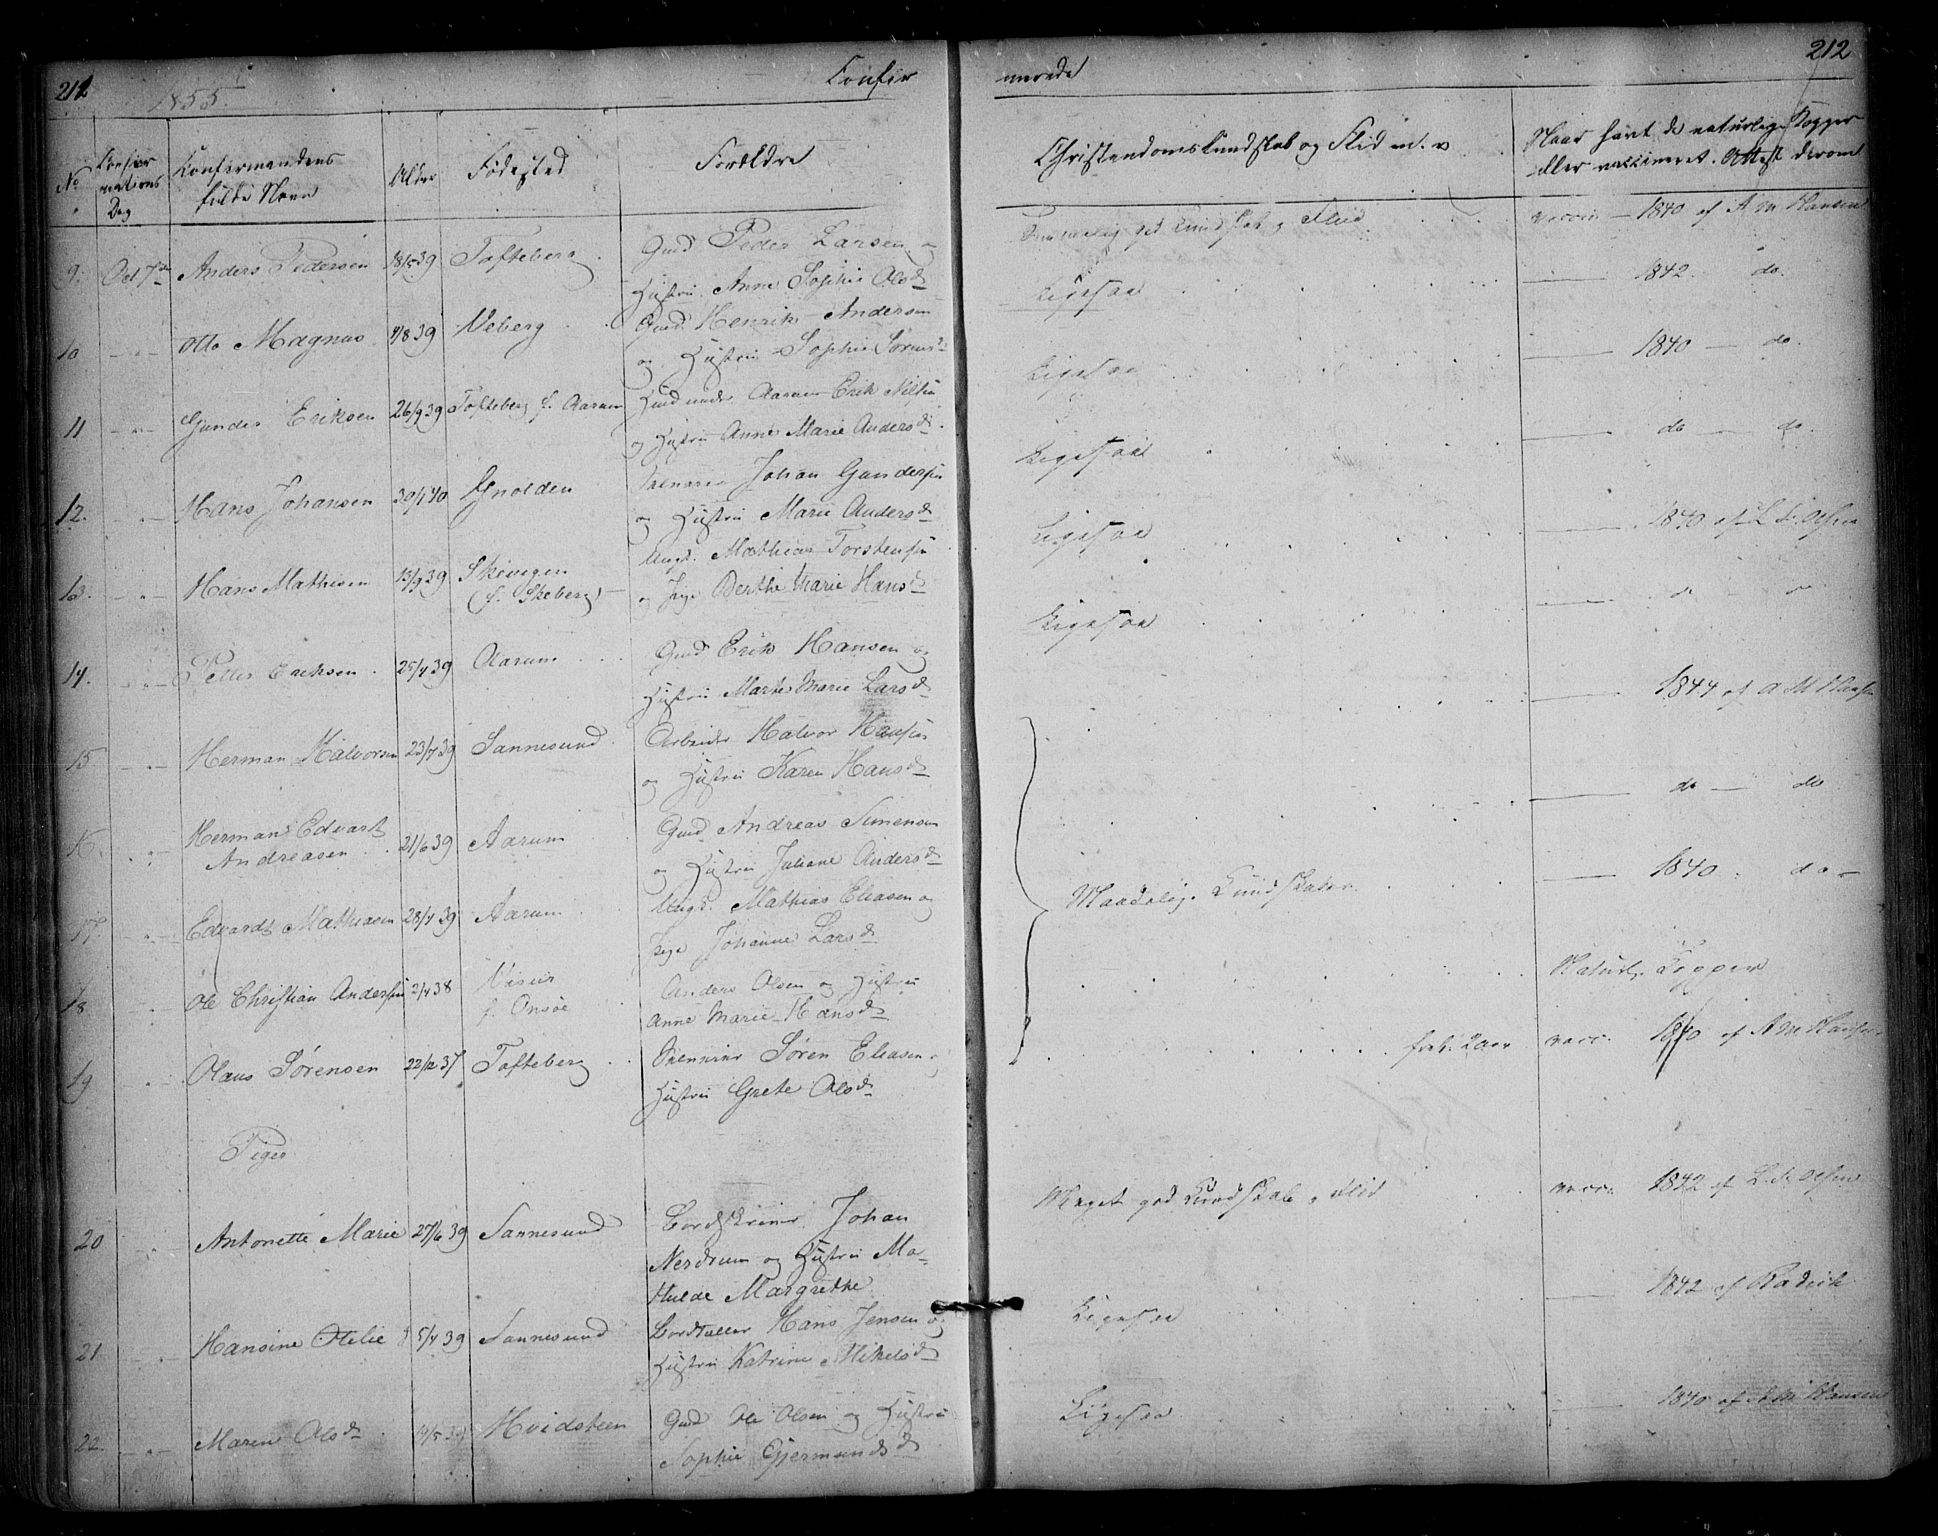 212 1855. Confir
merede 212
No Confirmations Dag Confirmandens fulde Navn Alder Fødested Forældre
Christendomskundskab og Flid m. v. Naar havt de naturlige Kopper eller vaccineret. Attest derom
9. Oct 7de Anders Pedersen 18/5 39 Tofteberg Gmd Peder Larsen og
Hustru Anne Sophie Olsd
god Kundskab og Flid vaccin 1840 af A M Hansen
10 Otto Magnus 4/8 39 Veberg Gmd. Henrik Andersen
og Hustru Sophie Sørensd
Ligesaa 1842 do.
11 Gunder Eriksen 26/9 39 Tofteberg f. Aarum Huusmd under Aarum Erik Nilsen
og Hustru Anne Marie Andersd.
Ligesaa 1840 do.
12. Hans Johansen 30/1 40 Gnolden Johan Gundersen
og Hustru Marie Andersd
Ligesaa do do.
13. Hans Mathisen 13/9 39 Skivigen (f. Skeberg) Ungk. Mathias Torstensen
og Pige Berthe Marie Hansd
Ligesaa 1840 af L. F. Olsen
14. Petter Eriksen. 25/4 39 Aarum Gmd Erik Hansen og
Hustru Marte Marie Larsd
Ligesaa
15 Herman Halvorsen 23/7 39 Sannesund Arbeider Halvor Hansen
og Hustru Karen Hansd
1844 af A M Hansen
16. Herman Edvart Andreasen 21/6 39 Aarum Gmd Andreas Simensen
og Hustru Juliane Andersd
do do
17. Edvardt Mathiasen 28/4 39 Aarum Ungk. Mathias Eliasen og
Pige Johanne Larsd
Maadelig Kundskaber 1840. do
18 Ole Christian Andersen 2/4 38 f. Onsøe Anders Olsen og Hustru
Anne Marie Hansd
Naturl. Kopper
19 Olaus Sørensen 22/12 37 Tofteberg Søren Eliasen og
Hustru Grete Olsd
2 Aar vacc. 1840 af A M Hansen
Piger
20 Antonette Marie 27/6 39 Sannesund Johan
Nerdrum og Hustru Ma-
thilde Margrethe
Meget god Kundskab og Flid vacc. 1842 af L. F. Olsen
21 Hansine Otilie 5/4 39 Sannesund Bordtæller Hans Jensen og
Hustru Katrine Mikelsd
Ligesaa 1842 af Radich
22. Maren Olsd Hvidsteen Gmd Ole Olsen og Hustru
Sophie Gjermundsd
Ligesaa 1840 af A M Hansen